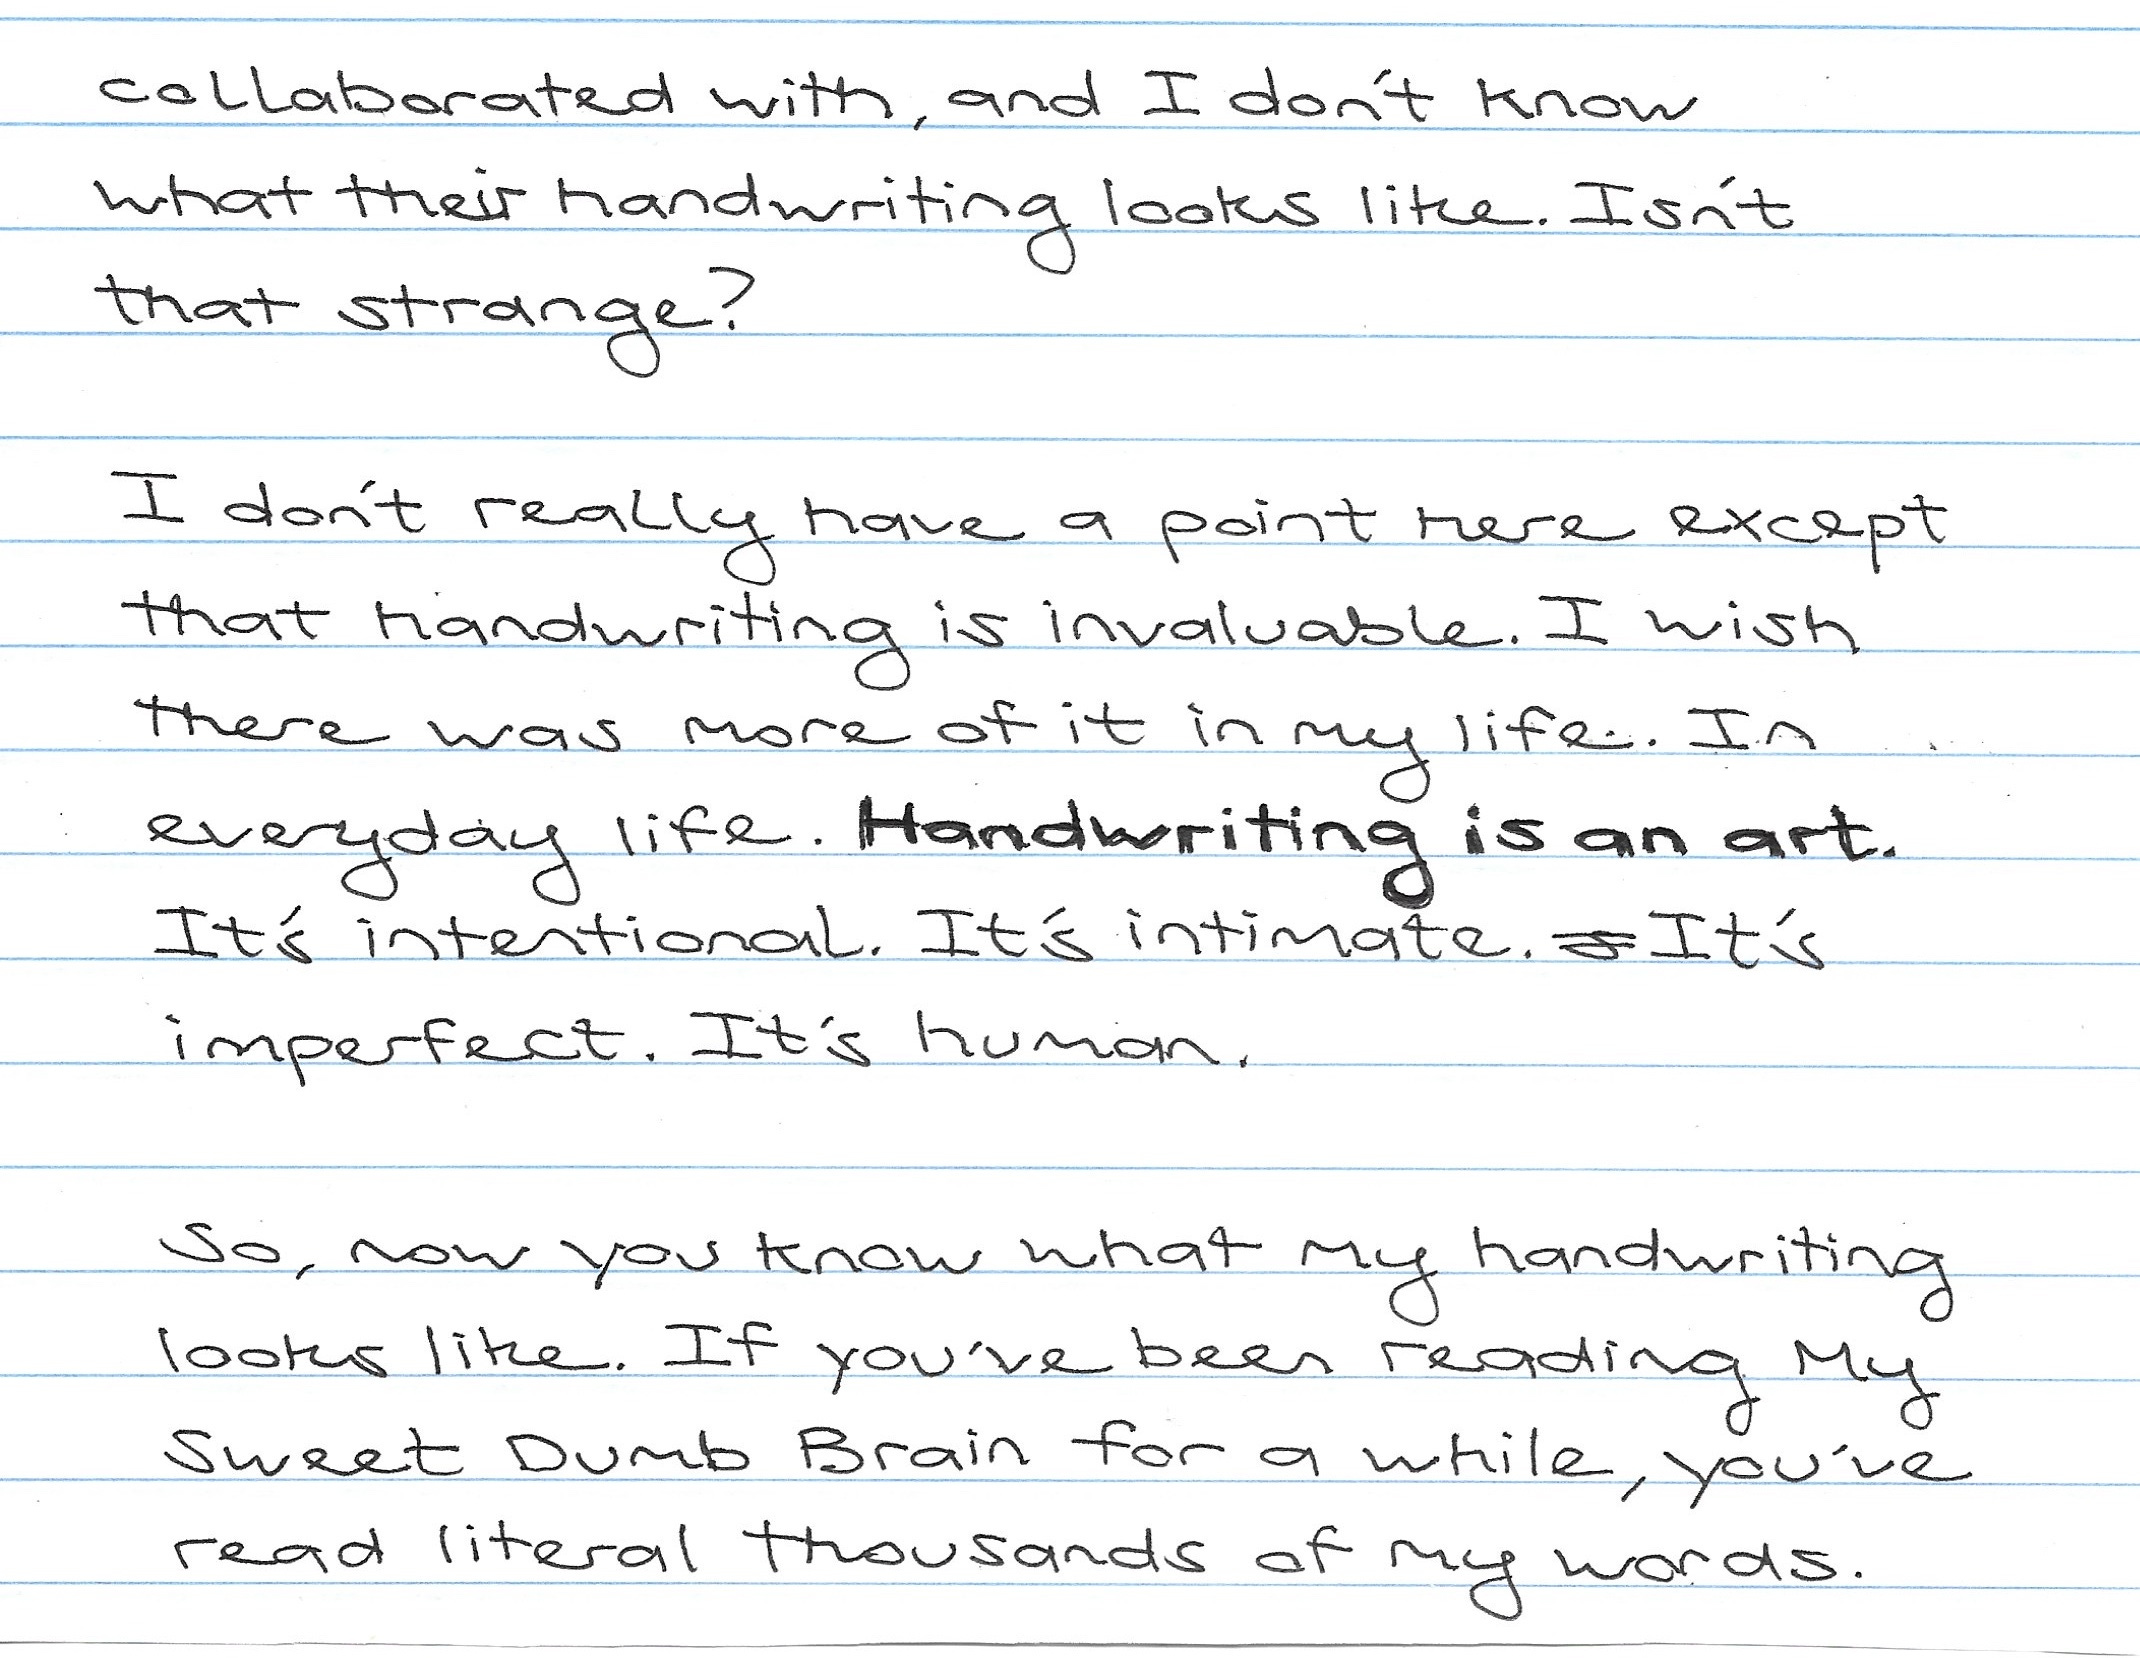 collaborated with, and I don't know
what their handwriting looks like. Isn't
that strange?
I don't really have a point here except
that handwriting is invaluable. I wish
there was more of it in my life. In
everyday life. Handwriting is an art.
It's intentional. It's intimate. It's
imperfect. It's human.
So, now you know what my handwriting
looks like. If you've been reading My
Sweet Dumb Brain for a while, you've
read literal thousands of my words.